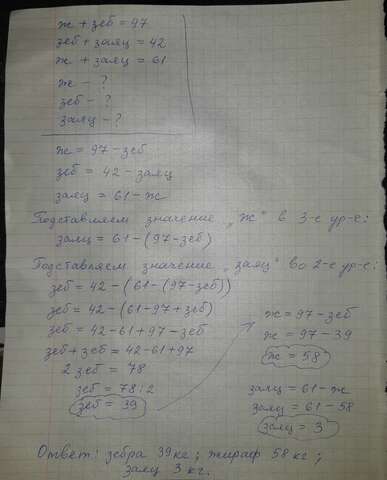 ж + зеб = 97
зеб + заяц = 42
ж + заяц = 61
ж - ?
зеб - ?
заяц - ?
ж = 97 - зеб
зеб = 42 - заяц
заяц = 61 - ж
Подставляем значение „ж" в 3-е ур-е:
заяц = 61 - (97 - зеб)
Подставляем значение „заяц" во 2-е ур-е:
зеб = 42 - (61 - (97 - зеб))
зеб = 42 - (61 - 97 + зеб)
зеб = 42 - 61 + 97 - зеб
зеб + зеб = 42 - 61 + 97
2 зеб = 78
зеб = 78 : 2
зеб = 39
ж = 97 - зеб
ж = 97 - 39
ж = 58
заяц = 61 - ж
заяц = 61 - 58
заяц = 3
Ответ: зебра 39 кг; жираф 58 кг;
заяц 3 кг.